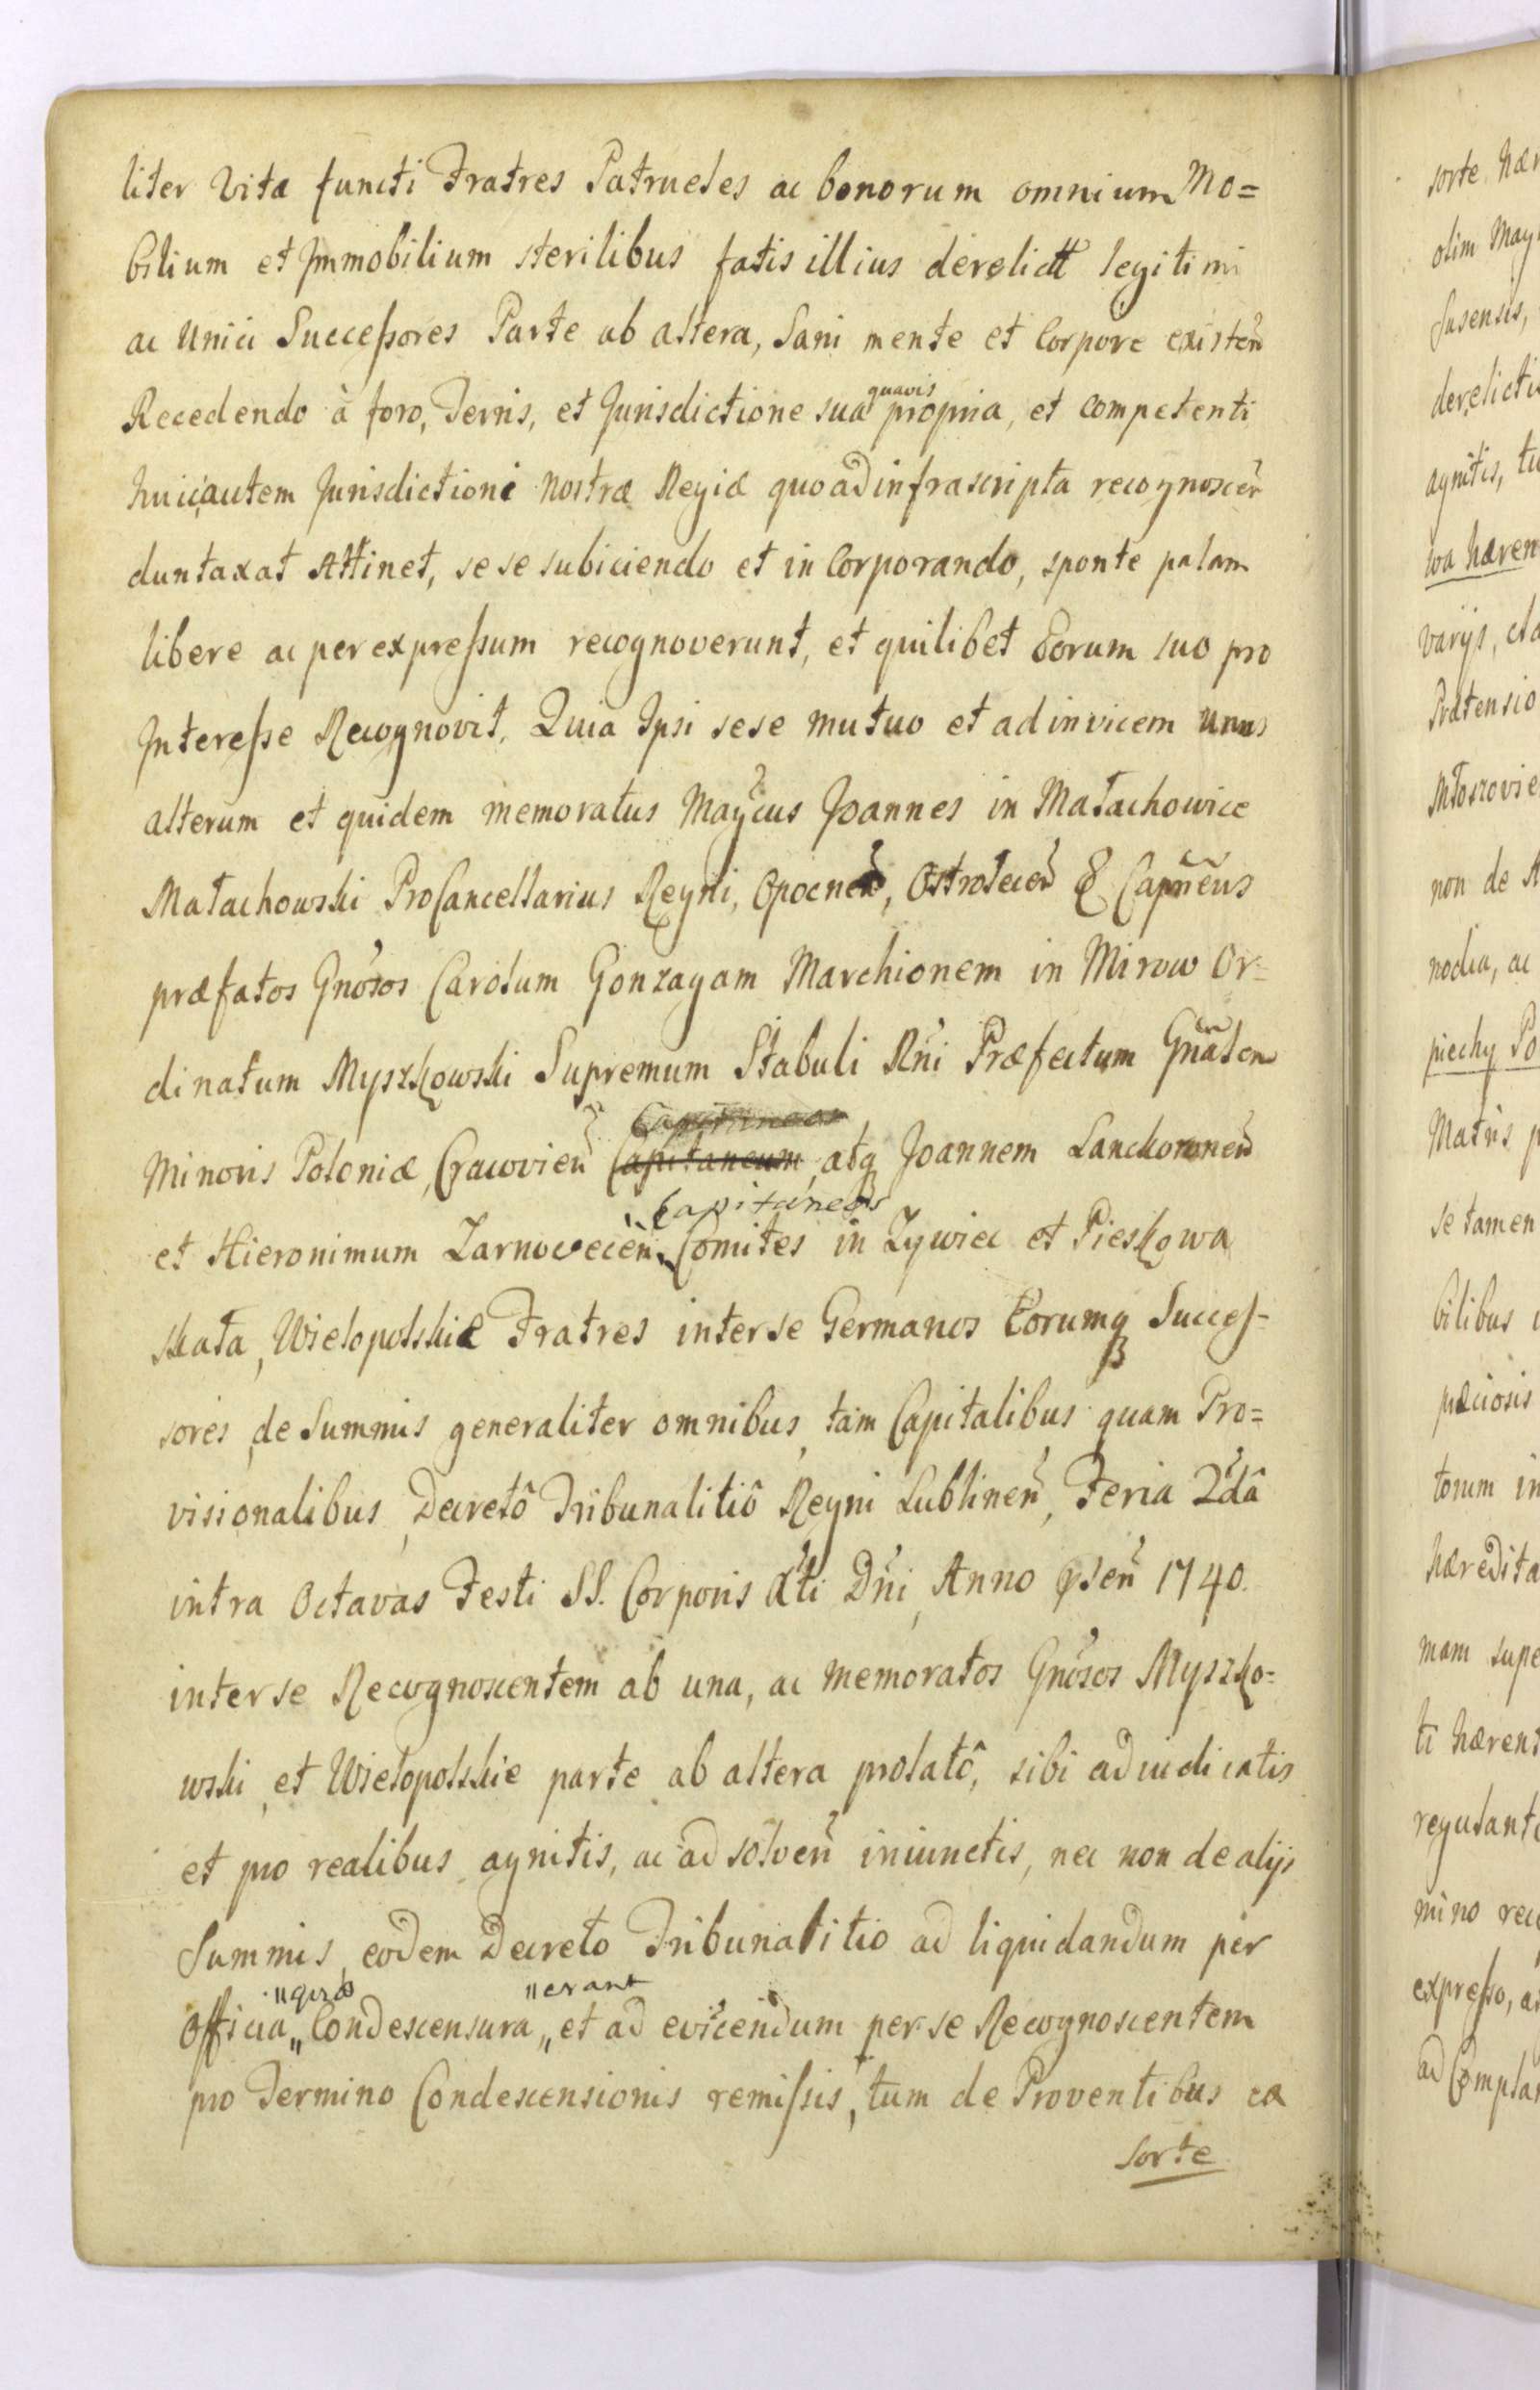 liter Vitæ functi Fratres Patrueles ac bonorum omnium Mo=
bilium et Immobilium sterilibus fatis illius derelictt legitimi
ac Unici Successores Parte ab altera, Sani mente et Corpore existen
quavis
Recedendo à foro, Terris, et Jurisdictione sua propria, et competenti
huic autem Jurisdictioni Nostræ Regiæ quo ad infrascripta recognoscen
duntaxat Attinet, se se subiciendo et in Corporando, sponte palam
libere ac per expressum recognoverunt, et quilibet Eorum suo pro
Interesse Recognovit. Quia Ipsi sese mutuo et ad invicem unus
alterum et quidem memoratus Magcus Joannes in Małachowice
Małachowski ProCancellarius Regni, Opocnen, Ostrołecen & Capneus
præfatos Gnosos Carolum Gonzagam Marchionem in Mirow Or=
dinatum Myszkowski Supremum Stabuli Rni Præfectum Gnalem
Capitaneos
Minoris Poloniæ, Cracovien Capitaneum, atq Joannem Lanckoronen
Capitaneos
et Hieronimum Zarnovecen Comites in Zywiec et Pieskowa
skała, Wielopolskie Fratres inter se Germanos Eorumq Succes=
sores, de Summis generaliter omnibus, tam Capitalibus quam Pro=
visionalibus, Decretô Tribunalitiô Regni Lublinen, Feria 2dâ
intra Octavas Festi SS. Corporis Xti Dni, Anno psen 1740.
inter se Recognoscentem ab una, ac memoratos Gnosos Myszko=
wski, et Wielopolskie parte ab altera prolatô, sibi adiudicatis
et pro realibus agnitis, ac ad solven iniunctis, nec non de alijs
Summis, eodem Decreto Tribunalitio ad liquidandum per
"erant
Officia " Condescensura " et ad evicendum per se Recognoscentem
pro Termino Condescensionis remissis, tum de Proventibus ex
sorte
sorte
olim
Susensis,
derelicti
agnitis,
varijs,
Prætensio
non de
nodia, ac
piechy Po
Matris
se tamen
bilibus
præciosis
torum in
hæredita
mam supe
ti hærent
mino rec
expresso,